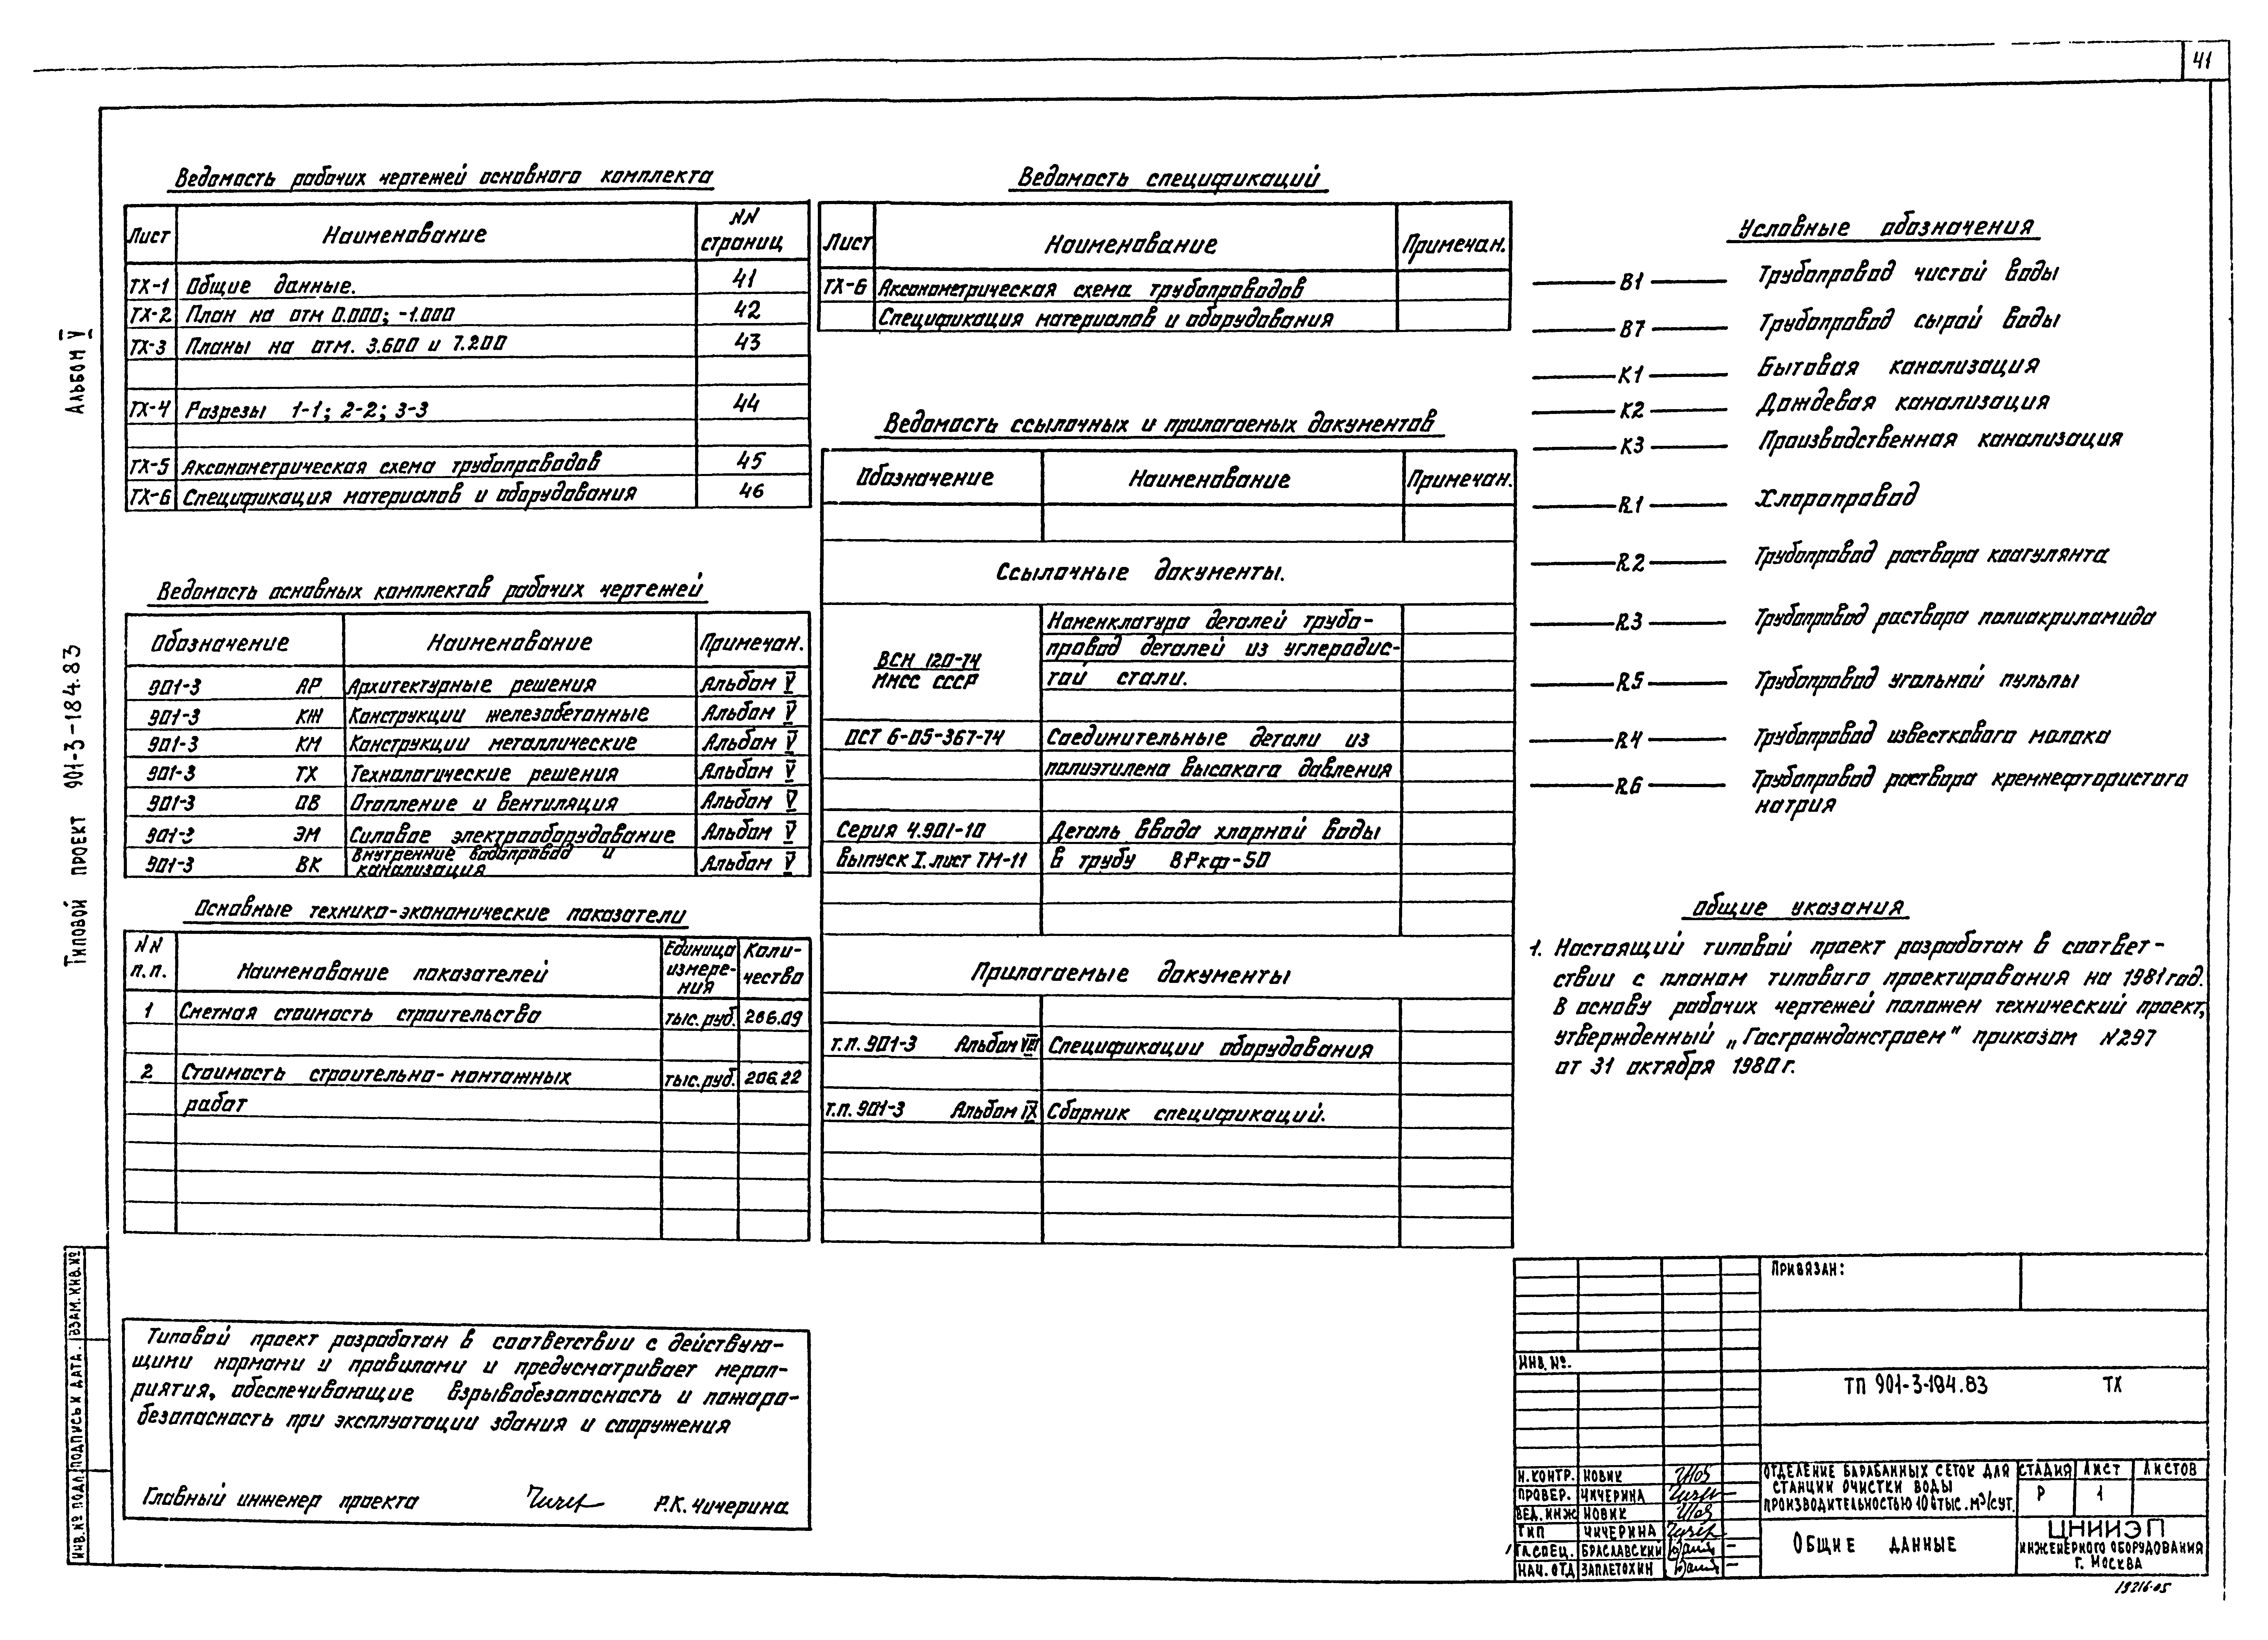 41
Альбом V
Типовой проект 901-3-184.83
Ведомость рабочих чертежей основного комплекта
Лист | Наименование | NN страниц
ТХ-1 | Общие данные. | 41
ТХ-2 | План на отм 0.000; -1.000 | 42
ТХ-3 | Планы на отм. 3.600 и 7.200 | 43
ТХ-4 | Разрезы 1-1; 2-2; 3-3 | 44
ТХ-5 | Аксонометрическая схема трубопроводов | 45
ТХ-6 | Спецификация материалов и оборудования | 46
Ведомость основных комплектов рабочих чертежей
Обозначение | Наименование | Примечан.
901-3 АР | Архитектурные решения | Альбом V
901-3 КЖ | Конструкции железобетонные | Альбом V
901-3 КМ | Конструкции металлические | Альбом V
901-3 ТХ | Технологические решения | Альбом V
901-3 ОВ | Отопление и вентиляция | Альбом V
901-3 ЭМ | Силовое электрооборудование | Альбом V
901-3 ВК | Внутренние водопровод и канализация | Альбом V
Основные технико-экономические показатели
NN п.п. | Наименование показателей | Единица измерения | Количество
1 | Сметная стоимость строительства | тыс.руб. | 286.09
2 | Стоимость строительно-монтажных | тыс.руб. | 206.22
работ
Типовой проект разработан в соответствии с действую-
щими нормами и правилами и предусматривает мероп-
риятия, обеспечивающие взрывобезопасность и пожаро-
безопасность при эксплуатации здания и сооружения
Главный инженер проекта Р.К. Чичерина
Ведомость спецификаций
Лист | Наименование | Примечан.
ТХ-6 | Аксонометрическая схема трубопроводов
Спецификация материалов и оборудования
Ведомость ссылочных и прилагаемых документов
Обозначение | Наименование | Примечан.
Ссылочные документы.
ВСН 120-74
ММСС СССР
Номенклатура деталей трубо-
провод деталей из углеродис-
той стали.
ОСТ 6-05-367-74 | Соединительные детали из
полиэтилена высокого давления
Серия 4.901-10 | Деталь ввода хлорной воды
выпуск I. лист ТМ-11 | в трубу ВРкф-50
Прилагаемые документы
т.п. 901-3 Альбом VIII | Спецификации оборудования
т.п. 901-3 Альбом IX | Сборник спецификаций.
Условные обозначения
В1 Трубопровод чистой воды
В7 Трубопровод сырой воды
К1 Бытовая канализация
К2 Дождевая канализация
К3 Производственная канализация
R1 Хлоропровод
R2 Трубопровод раствора коагулянта
R3 Трубопровод раствора полиакриламида
R5 Трубопровод угольной пульпы
R4 Трубопровод известкового молока
R6 Трубопровод раствора кремнефтористого
натрия
Общие указания
1. Настоящий типовой проект разработан в соответ-
ствии с планом типового проектирования на 1981 год.
В основу рабочих чертежей положен технический проект,
утвержденный „Госгражданстроем" приказом N297
от 31 октября 1980 г.
Инв.№ подл | Подпись и дата. | Взам.инв.№
Привязан:
Инв. №.
ТП 901-3-184.83 ТХ
Н.контр. Новик
Провер. Чичерина
Вед.инж Новик
ГИП Чичерина
Гл.спец. Браславский
Нач.отд Заплетохин
Отделение барабанных сеток для
станции очистки воды
производительностью 10 тыс.м³/сут.
Стадия | Лист | Листов
Р | 1
Общие данные
ЦНИИЭП
инженерного оборудования
г. Москва
19216-05